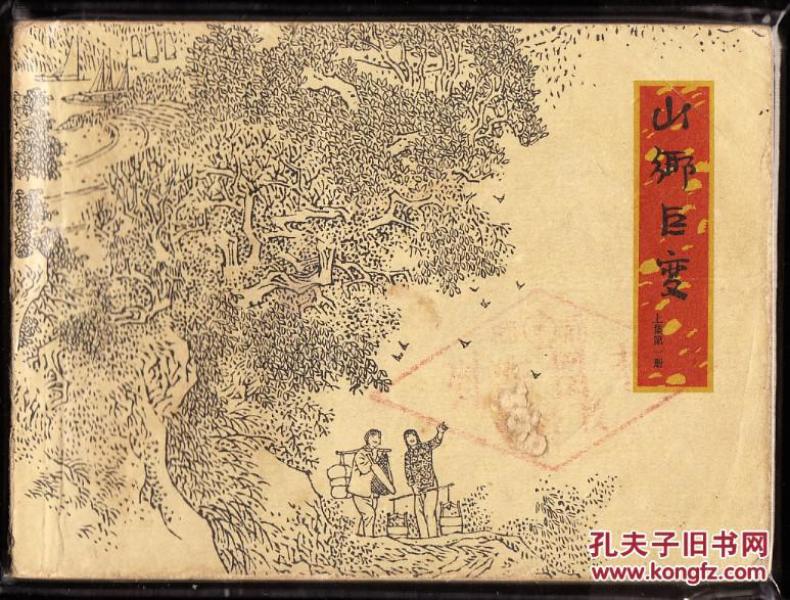 山乡巨变
上集第一册
孔夫子旧书网
www.kongfz.com